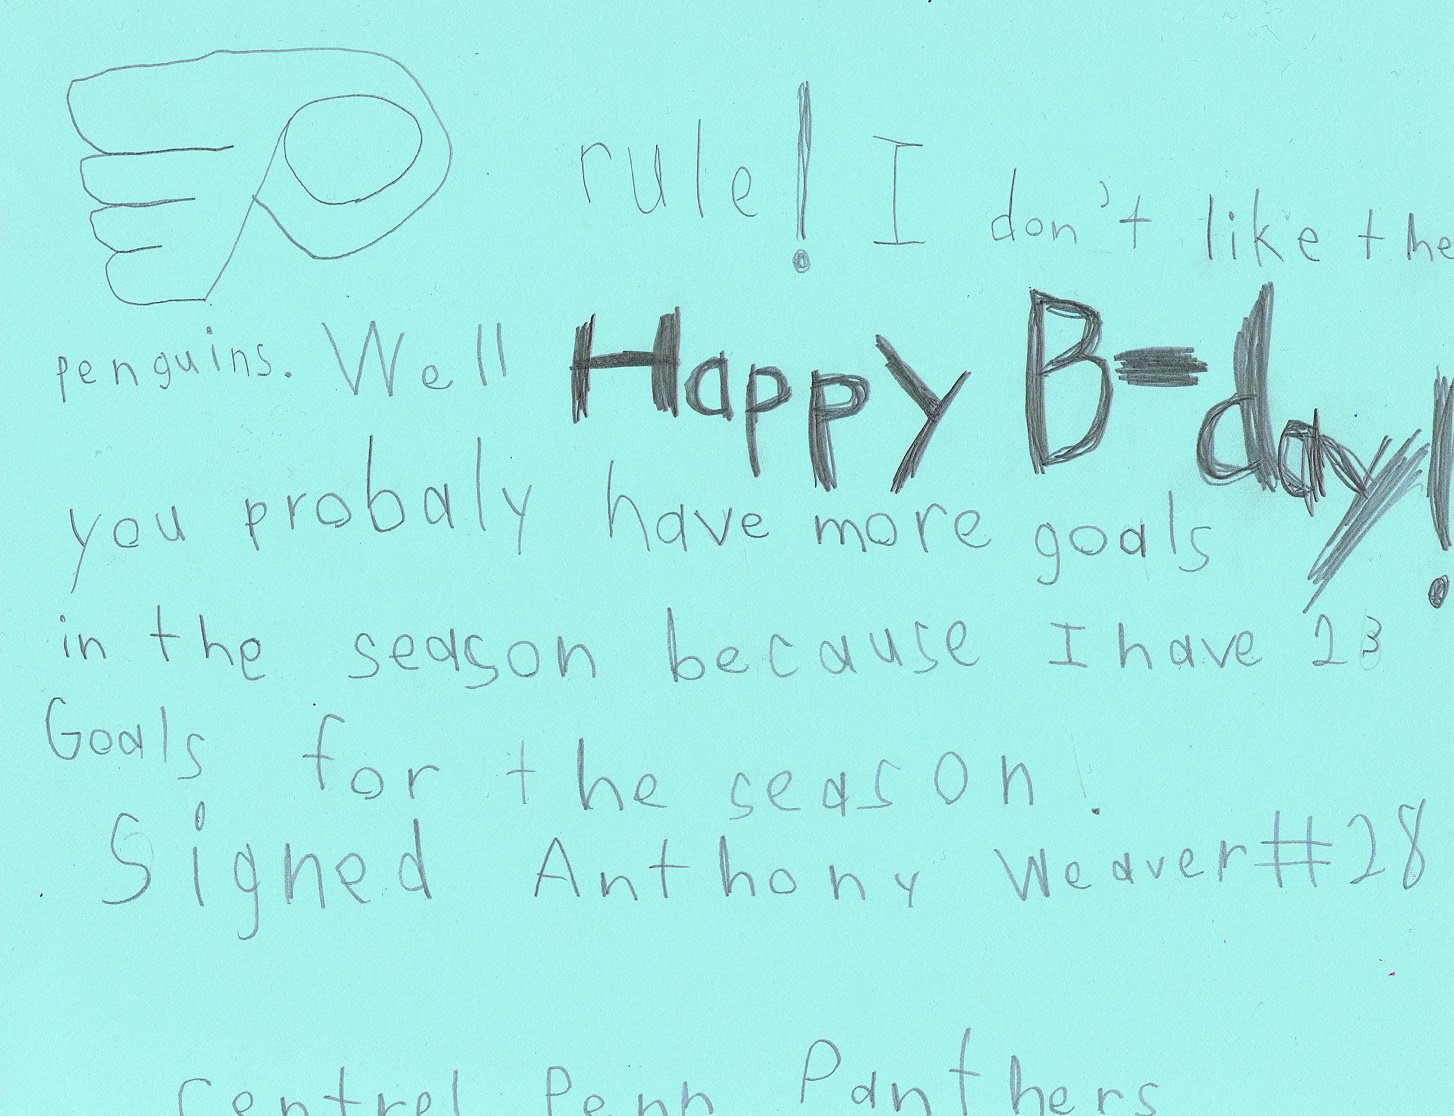 rule! I don't like the
penguins. Well Happy B-day!
you probaly have more goals
in the season because I have 23
Goals for the season!
Signed Anthony Weaver #28
Central Penn Panthers